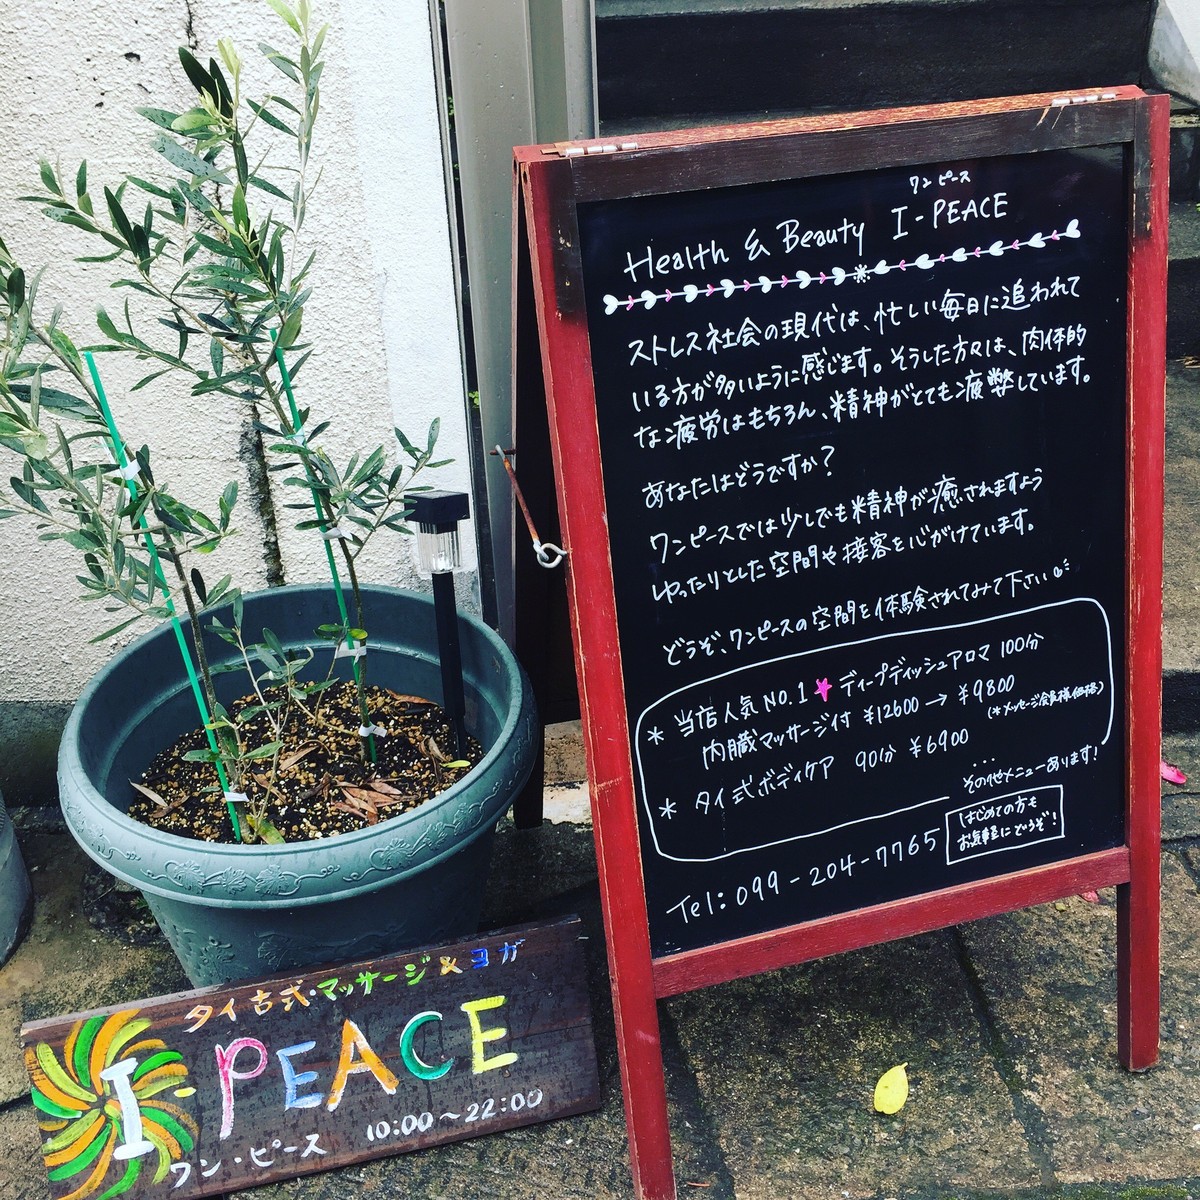 ワンピース
Health & Beauty I-PEACE
ストレス社会の現代は、忙しい毎日に追われて
いる方が多いように感じます。そうした方々は、肉体的
な疲労はもちろん、精神がとても疲弊しています。
あなたはどうですか?
ワンピースでは少しでも精神が癒されますよう
ゆったりとした空間や接客を心がけています。
どうぞ、ワンピースの空間を体験されてみて下さい
* 当店人気NO.1 ディープディッシュアロマ 100分
内臓マッサージ付 ¥12600→¥9800
(*メッセージ会員様価格)
* タイ式ボディケア 90分 ¥6900
...
その他メニューあります!
はじめての方も
お気軽にどうぞ!
Tel:099-204-7765
タイ古式・マッサージ&ヨガ
I-PEACE
ワン・ピース 10:00~22:00